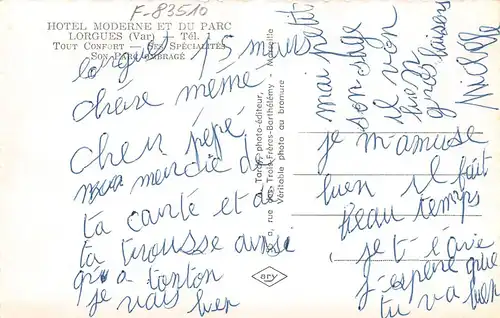 F-83510
HOTEL MODERNE ET DU PARC
LORGUES (Var) — Tél. 1
TOUT CONFORT — SES SPÉCIALITÉS
SON PARC OMBRAGÉ
lorgues 15 mars
chère mémé
cher pépé
merdie de
ta carté et de
ta trousse ainsi
qu'a tonton
je vais bien
je m'amuse
bien il fait
beau temps
je t'écrie
j-espère que
tu va bien
mai petit
son sage
il von
bien
gros baisers
Michèle
Tardy, photo-éditeur,
rue des Trois-Frères-Barthélémy - Marseille
Véritable photo au bromure
ary